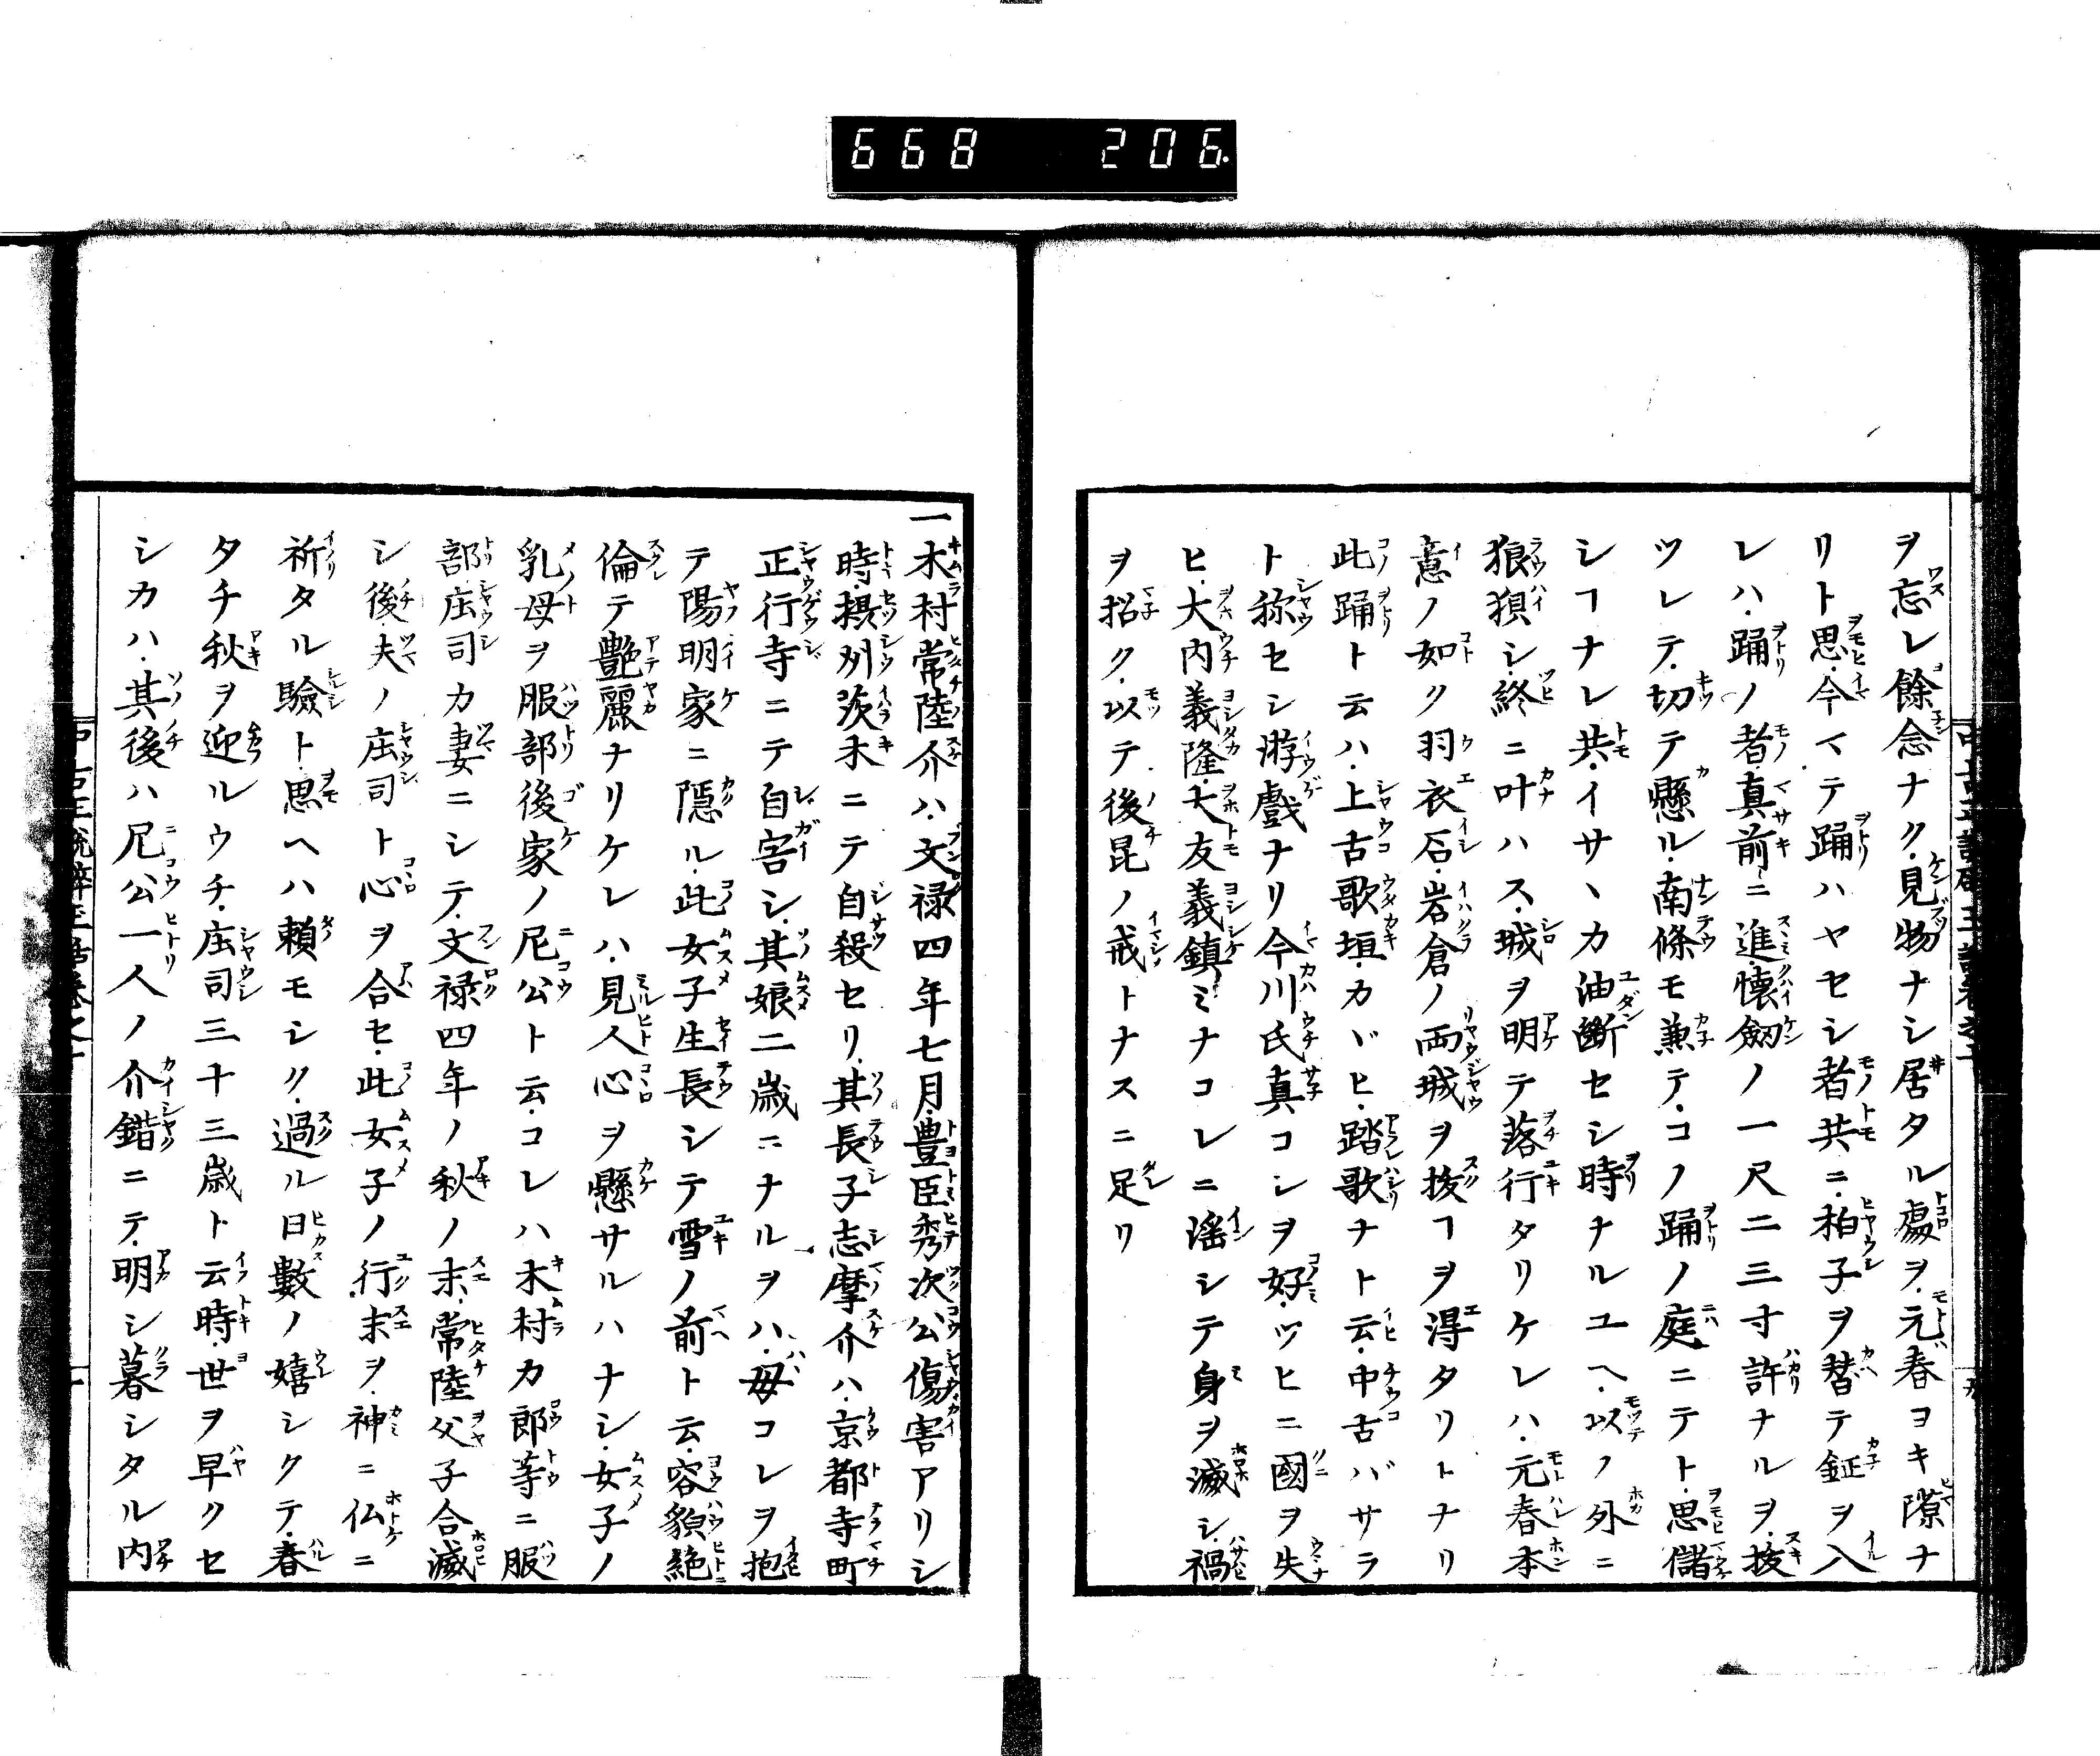 668 206.
ヲ忘レ餘念ナク見物ナシ居タル處ヲ元春ヨキ隙ナ
リト思今マテ踊ハヤセシ者共ニ柏子ヲ替テ鉦ヲ入
レハ踊ノ者真前ニ進懐劔ノ一尺二三寸許ナルヲ抜
ツレテ切テ懸ル南條モ兼テコノ踊ノ庭ニテト思儲
シヿナレ共イサヽカ油断セシ時ナルユヘ以ノ外ニ
狼狽シ終ニ叶ハス城ヲ明テ落行タリケレハ元春本
意ノ如ク羽衣石岩倉ノ両城ヲ抜ヿヲ淂タリトナリ
此踊ト云ハ上古歌垣カヾヒ踏歌ナト云中古バサラ
ト称セシ游戲ナリ今川氏真コシヲ好ツヒニ國ヲ失
ヒ大内義隆大友義鎮ミナコレニ滛シテ身ヲ滅シ禍
ヲ招ク以テ後昆ノ戒トナスニ足リ
一木村常陸介ハ文禄四年七月豊臣秀次公傷害アリシ
時摂州茨木ニテ自殺セリ其長子志摩介ハ京都寺町
正行寺ニテ自害シ其娘二歳ニナルヲハ母コレヲ抱
テ陽明家ニ隠ル此女子生長シテ雪ノ前ト云容貌絶
倫テ艶麗ナリケレハ見人心ヲ懸サルハナシ女子ノ
乳母ヲ服部後家ノ尼公ト云コレハ木村カ郎等ニ服
部庄司カ妻ニシテ文禄四年ノ秋ノ末常陸父子合滅
シ後夫ノ庄司ト心ヲ合セ此女子ノ行末ヲ神ニ仏ニ
祈タル驗ト思ヘハ頼モシク過ル日數ノ嬉シクテ春
タチ秋ヲ迎ルウチ庄司三十三歳ト云時世ヲ早クセ
シカハ其後ハ尼公一人ノ介錯ニテ明シ暮シタル内